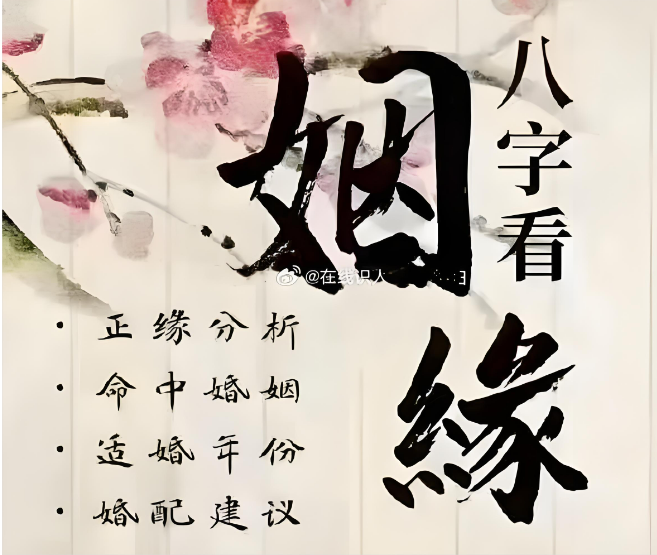 八字看
姻緣
@在线识人
正缘分析
命中婚姻
适婚年份
婚配建议